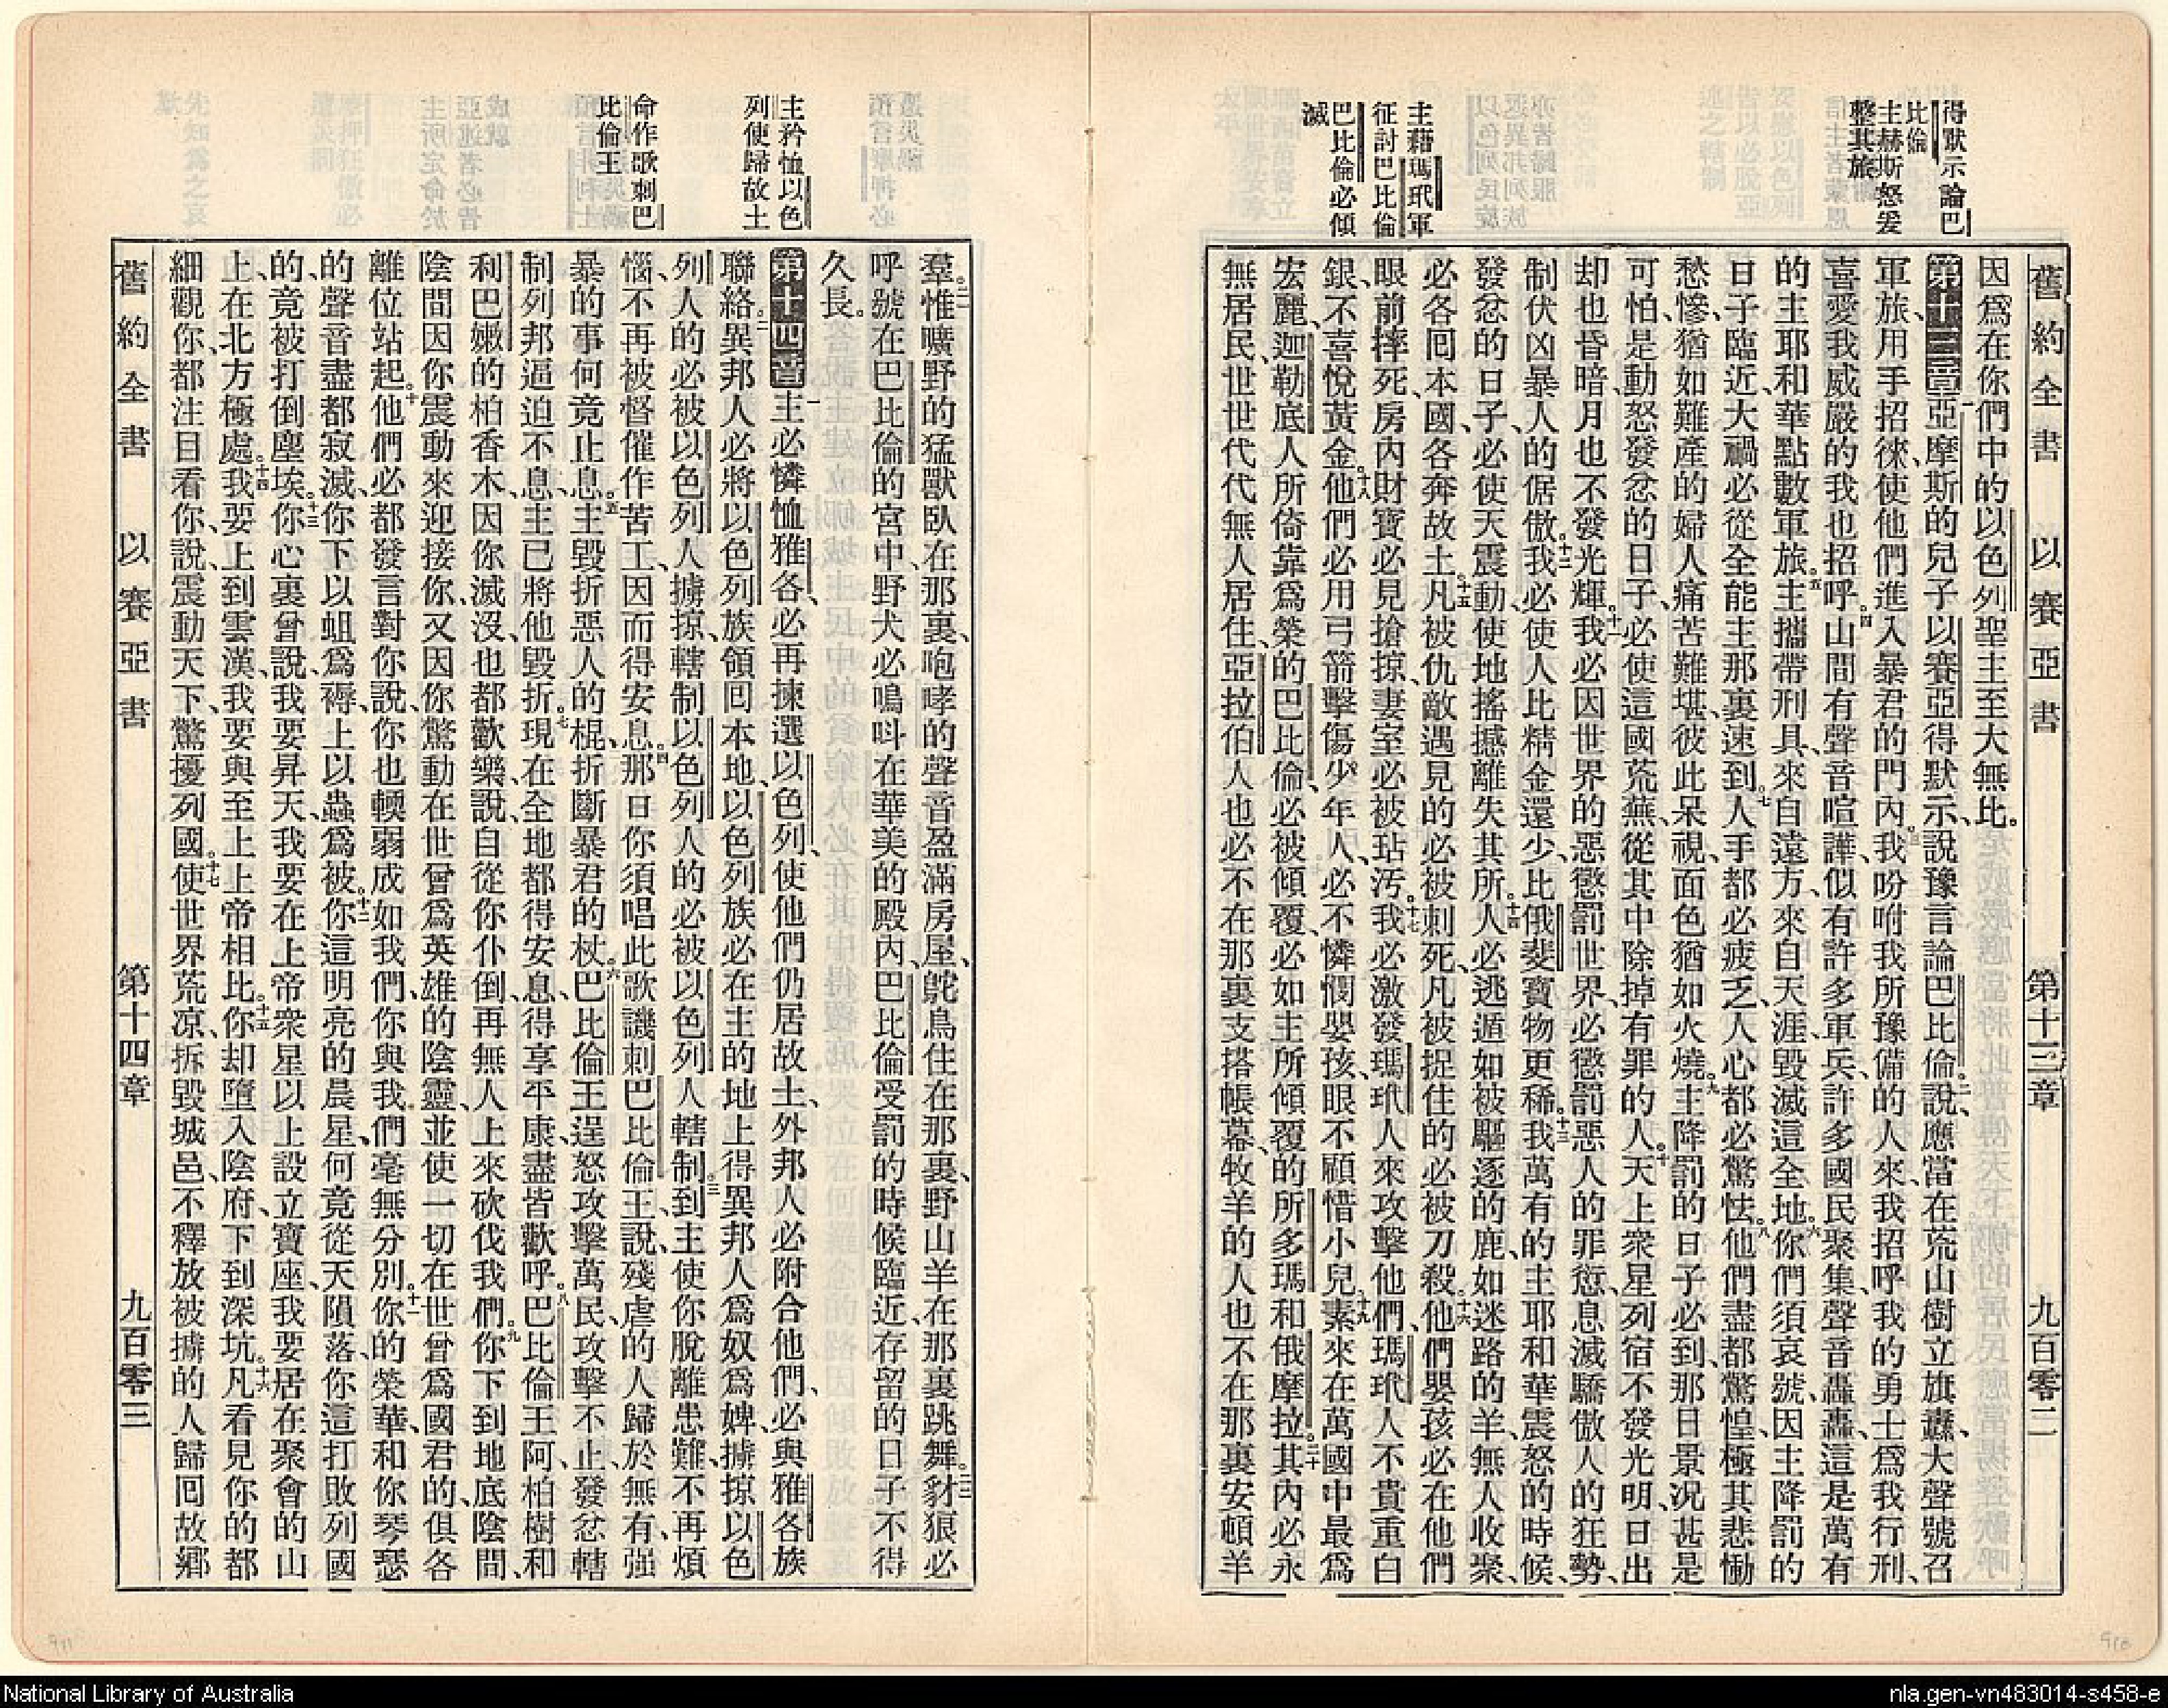 舊約全書 以賽亞書 第十三章 九百零二
得默示論巴
比倫
主赫斯怒爰
整其旅
主藉瑪玳軍
征討巴比倫
巴比倫必傾
滅
因爲在你們中的以色列聖主至大無比。
第十三章 一亞摩斯的兒子以賽亞得默示說豫言論巴比倫、二說應當在荒山樹立旗纛、大聲號召
軍旅、用手招徠、使他們進入暴君的門內、三我吩咐我所豫備的人來、我招呼我的勇士爲我行刑、
喜愛我威嚴的我也招呼。四山間有聲音喧譁、似有許多軍兵、許多國民聚集、聲音轟轟、這是萬有
的主耶和華點數軍旅。五主攜帶刑具、來自遠方、來自天涯、毀滅這全地。六你們須哀號、因主降罰的
日子臨近、大禍必從全能主那裏速到。七人手都必疲乏、人心都必驚怯。八他們盡都驚惶、極其悲慟
愁慘、猶如難產的婦人痛苦難堪、彼此呆視、面色猶如火燒。九主降罰的日子必到、那日景況甚是
可怕、是動怒發忿的日子、必使這國荒蕪、從其中除掉有罪的人。十天上衆星列宿不發光明、日出
却也昏暗、月也不發光輝。十一我必因世界的惡懲罰世界、必懲罰惡人的罪愆、息滅驕傲人的狂勢、
制伏凶暴人的倨傲。十二我必使人比精金還少、比俄斐寶物更稀。十三我萬有的主耶和華震怒的時候、
發忿的日子、必使天震動、使地搖撼離失其所。十四人必逃遁如被驅逐的鹿、如迷路的羊無人收聚、
必各囘本國、各奔故土。十五凡被仇敵遇見的必被刺死、凡被捉住的必被刀殺。十六他們嬰孩必在他們
眼前摔死、房內財寶必見搶掠、妻室必被玷汚。十七我必激發瑪玳人來攻擊他們、瑪玳人不貴重白
銀、不喜悅黃金。十八他們必用弓箭擊傷少年人、必不憐憫嬰孩、眼不顧惜小兒。十九素來在萬國中最爲
宏麗、迦勒底人所倚靠爲榮的巴比倫、必被傾覆、必如主所傾覆的所多瑪和俄摩拉。二十其內必永
無居民、世世代代無人居住、亞拉伯人也必不在那裏支搭帳幕、牧羊的人也不在那裏安頓羊
主矜恤以色
列使歸故土
命作歌刺巴
比倫王
羣。二一惟曠野的猛獸臥在那裏、咆哮的聲音盈滿房屋、鴕鳥住在那裏、野山羊在那裏跳舞。二二豺狼必
呼號在巴比倫的宮中、野犬必鳴呌在華美的殿內、巴比倫受罰的時候臨近、存留的日子不得
久長。
第十四章 一主必憐恤雅各、必再揀選以色列、使他們仍居故土、外邦人必附合他們、必與雅各族
聯絡。二異邦人必將以色列族領囘本地、以色列族必在主的地上得異邦人爲奴爲婢、擄掠以色
列人的必被以色列人擄掠、轄制以色列人的必被以色列人轄制。三到主使你脫離患難、不再煩
惱、不再被督催作苦工、因而得安息。四那日你須唱此歌譏刺巴比倫王說、殘虐的人歸於無有、强
暴的事何竟止息。五主毀折惡人的棍、折斷暴君的杖。六巴比倫王逞怒攻擊萬民、攻擊不止、發忿轄
制列邦、逼迫不息、主已將他毀折。七現在全地都得安息、得享平康、盡皆歡呼。八巴比倫王阿、柏樹和
利巴嫩的柏香木、因你滅沒、也都歡樂、說自從你仆倒、再無人上來砍伐我們。九你下到地底陰間、
陰間因你震動來迎接你、又因你驚動在世曾爲英雄的陰靈、並使一切在世曾爲國君的、俱各
離位站起。十他們必都發言對你說、你也輭弱成如我們、你與我們毫無分別。十一你的榮華、和你琴瑟
的聲音、盡都寂滅、你下以蛆爲褥、上以蟲爲被。十二你這明亮的晨星、何竟從天隕落、你這打敗列國
的、竟被打倒塵埃。十三你心裏曾說、我要昇天、我要在上帝衆星以上設立寶座、我要居在聚會的山
上、在北方極處。十四我要上到雲漢、我要與至上上帝相比。十五你却墮入陰府、下到深坑。十六凡看見你的都
細觀你、都注目看你、說震動天下、驚擾列國、十七使世界荒凉、拆毀城邑、不釋放被擄的人歸囘故鄉
舊約全書 以賽亞書 第十四章 九百零三
National Library of Australia
nla.gen-vn483014-s458-e